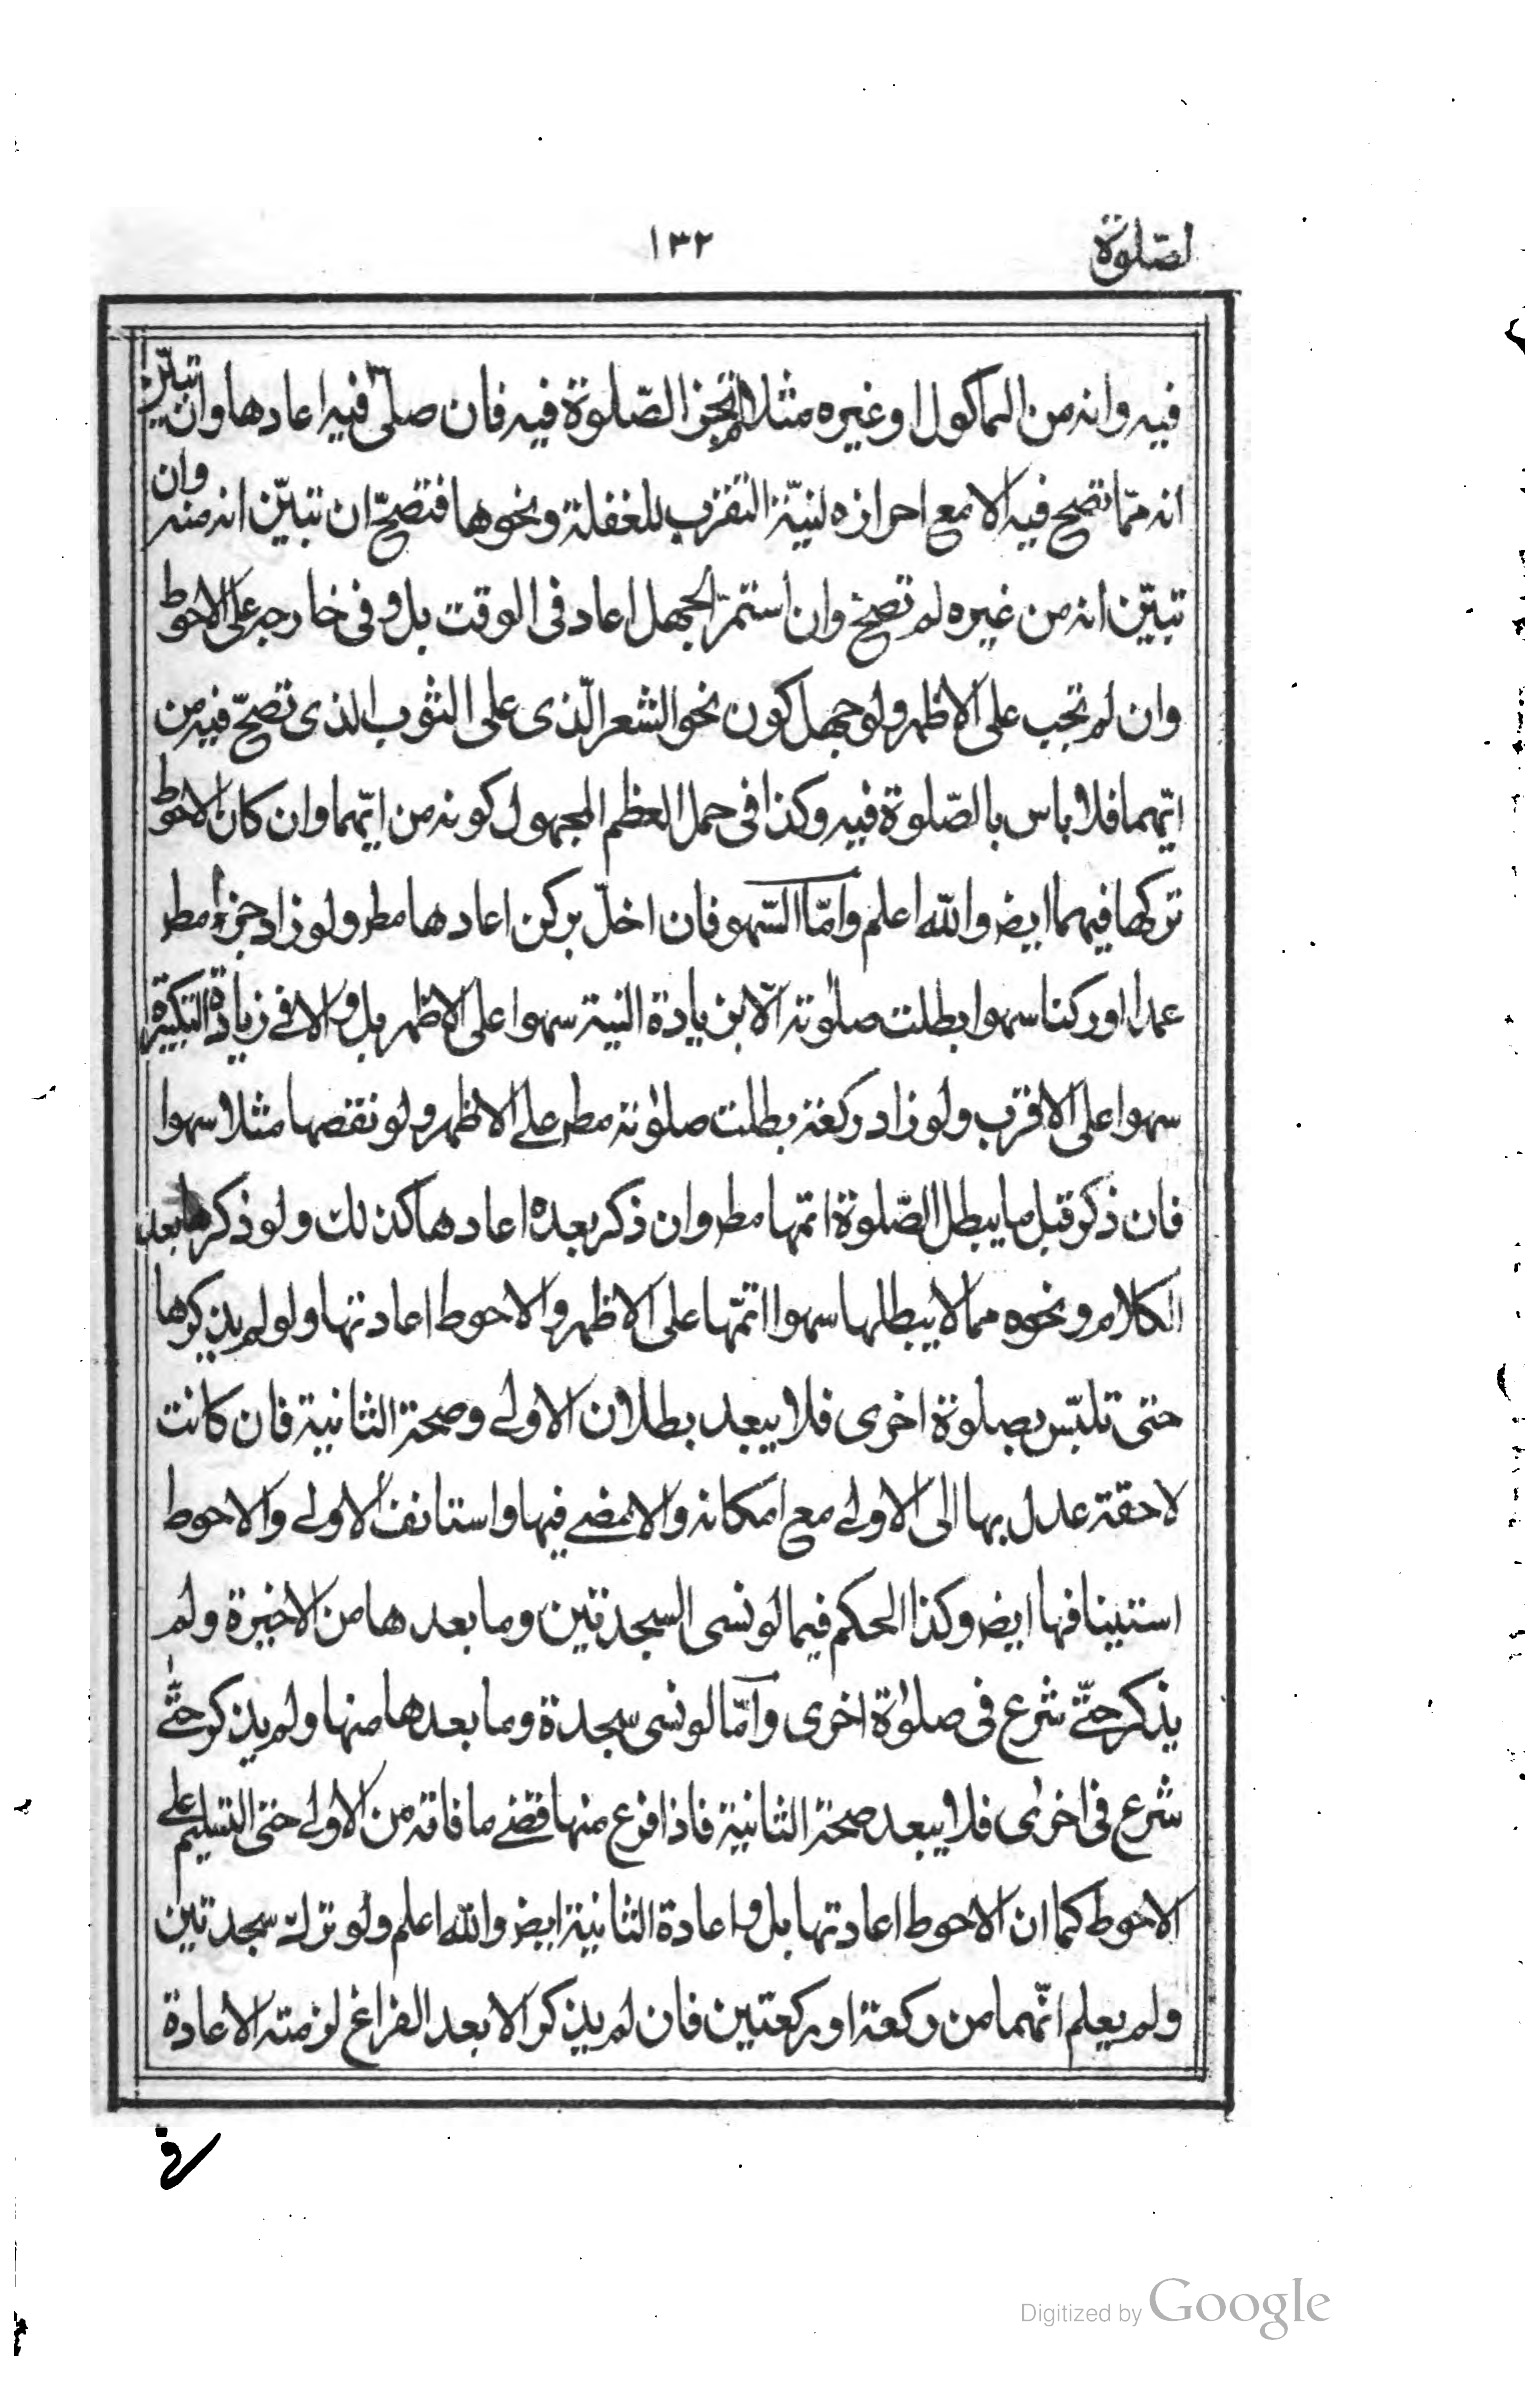 لصّلوة ١٣٢
فيه وانه من الماكول او غيره مثلا لم تجز الصّلوة فيه فان صلّى فيه اعادها وان تبيّن
انه ممّا تصح فيه الا مع احرازه لنيّة التقرب للغفلة ونحوها فتصحّ ان تبيّن انه منه وان
تبيّن انه من غيره لم تصحّ وان استمرّ الجهل اعاد فى الوقت بل وفى خارجه على الاحوط
وان لم تجب على الاظهر ولو جهل كون نحو الشعر الّذى على الثوب الذى تصحّ فيه من
ايّهما فلا باس بالصّلوة فيه وكذا فى حمل العظم المجهول كونه من ايّهما وان كان الاحوط
تركها فيهما ايض والله اعلم وامّا السّهو فان اخلّ بركن اعادها مطر ولو زاد جزءا مطر
عمدا او ركنا سهوا بطلت صلوته الّا بزيادة النية سهوا على الاظهر بل والا فى زيادة التكبيرة
سهوا على الاقرب ولو زاد ركعة بطلت صلوته مطر على الاظهر ولو نقصها مثلا سهوا
فان ذكر قبل ما يبطل الصّلوة اتمّها مطر وان ذكر بعده اعادها كذلك ولو ذكرها بعد
الكلام ونحوه مما لا يبطلها سهوا اتمّها على الاظهر والاحوط اعادتها ولو لم يذكرها
حتى تلبّس بصلوة اخرى فلا يبعد بطلان الاولى وصحة الثانية فان كانت
لاحقة عدل بها الى الاولى مع امكانه والا مضى فيها واستانف الاولى والاحوط
استينافها ايض وكذا الحكم فيما لو نسى السجدتين وما بعدها من الاخيرة ولم
يذكر حتّى شرع فى صلوة اخرى وامّا لو نسى سجدة وما بعدها منها ولم يذكر حتّى
شرع فى اخرى فلا يبعد صحة الثانية فاذا فرغ منها قضى ما فاته من الاولى حتى التسليم على
الاحوط كما ان الاحوط اعادتها بل واعادة الثانية ايض والله اعلم ولو ترك سجدتين
ولم يعلم انّهما من ركعة او ركعتين فان لم يذكر الا بعد الفراغ لزمته الاعادة
فى
Digitized by Google